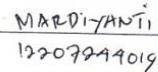 MARDIYANTI
12207244019